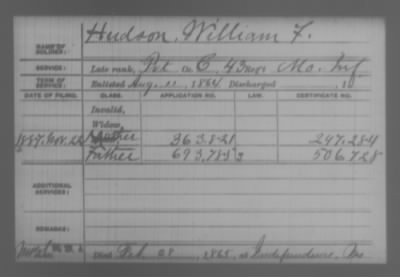 Hudson, William F.
NAME OF SOLDIER:
SERVICE: Late rank, Pvt Co. C, 43 Regt Mo. Inf
TERM OF SERVICE: Enlisted Aug. 1864 Discharged , 18
DATE OF FILING. CLASS. APPLICATION NO. LAW. CERTIFICATE NO.
Invalid,
Widow,
1887, Nov. 22 Mother 363.821 247.284
Father 693,785 506.728
ADDITIONAL SERVICES:
REMARKS:
Died Feb. 28, 1865, at Independence, Mo